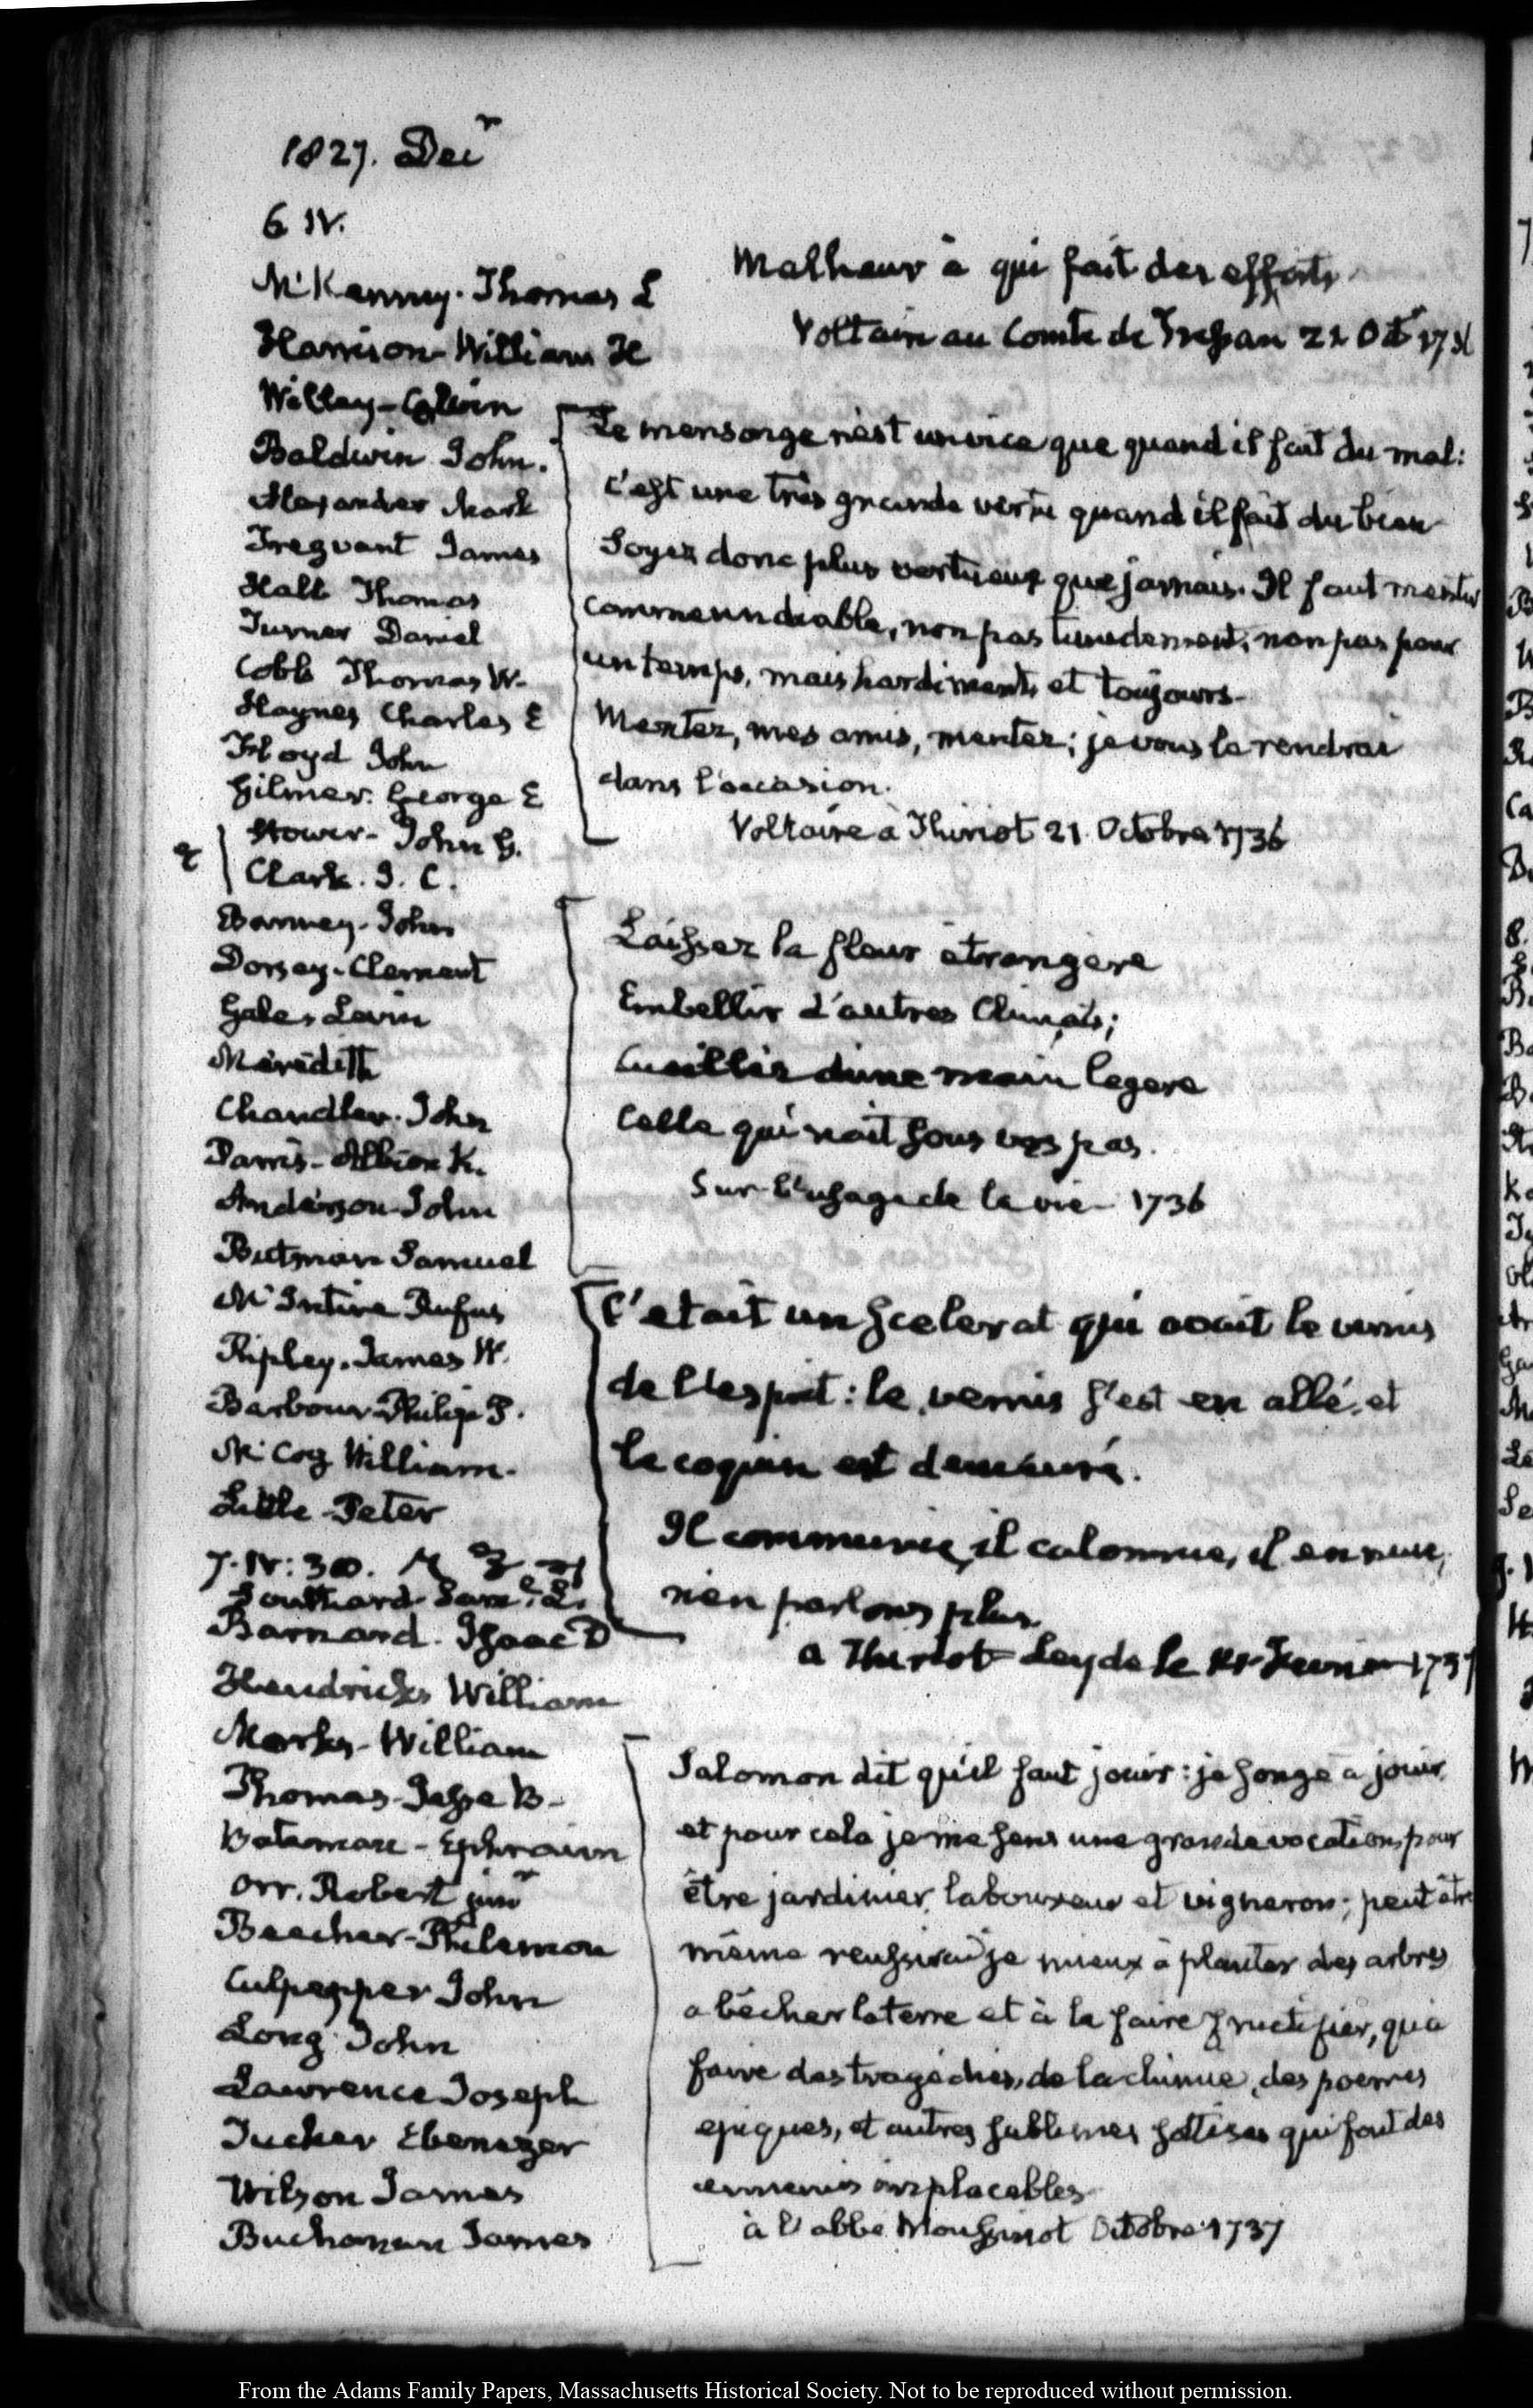 1827. Decr
6 IV.
McKenney. Thomas L
Harrison - William H
Willey - Calvin
Baldwin John.
Alexander Mark
Trezvant James
Hall Thomas
Turner Daniel
Cobb Thomas W.
Haynes Charles E
Floyd John
Gilmer. George E
Stower - John G.
Clark. J. C.
Barney - John
Dorsey - Clement
Gale, Levin
Meredith
Chandler. John
Parris - Albion K.
Anderson - John
Butman Samuel
McIntire Rufus
Ripley. James W.
Barbour - Philip P.
McCoy William.
Little - Peter
7. IV: 30.
Southard Saml. L.
Barnard. Isaac D
Hendricks William
Marks - William
Thomas - Jesse B -
Bateman - Ephraim
Orr. Robert junr
Beecher - Philemon
Culpepper John
Long John
Lawrence Joseph
Tucker Ebenezer
Wilson James
Buchanan James
Malheur à qui fait des efforts
Voltaire au Comte de Tressan 21 Octr 1736
Le mensonge n'est un vice que quand il fait du mal:
c'est une très grande vertu quand il fait du bien
Soyez donc plus vertueux que jamais. Il faut mentir
comme un diable, non pas timidement, non pas pour
un temps, mais hardiment, et toujours -
Mentez, mes amis, mentez; je vous le rendrai
dans l'occasion.
Voltaire à Thiriot 21. Octobre 1736
Laissez la fleur étrangere
Embellir d'autres Climats;
Cueillez d'une main legere
Celle qui nait sous vos pas.
Sur l'usage de la vie - 1736
C'etait un scelerat qui avait le vernis
de l'esprit: le vernis s'est en allé, et
le coquin est demeuré.
Il communie, il calomnie, il ennuie,
n'en parlons plus
a Thiriot Leyde le Fevrier 1737
Salomon dit qu'il faut jouir: je songe a jouir
et pour cela je me sens une grande vocation pour
être jardinier, laboureur et vigneron; peut être
même reussirai je mieux à planter des arbres
a bécher la terre et à la faire fructifier, qu'a
faire des tragedies, de la chimie, des poemes
epiques, et autres sublimes sottises qui font des
ennemis implacables
à l'abbé Moussinot Octobre 1737
From the Adams Family Papers, Massachusetts Historical Society. Not to be reproduced without permission.